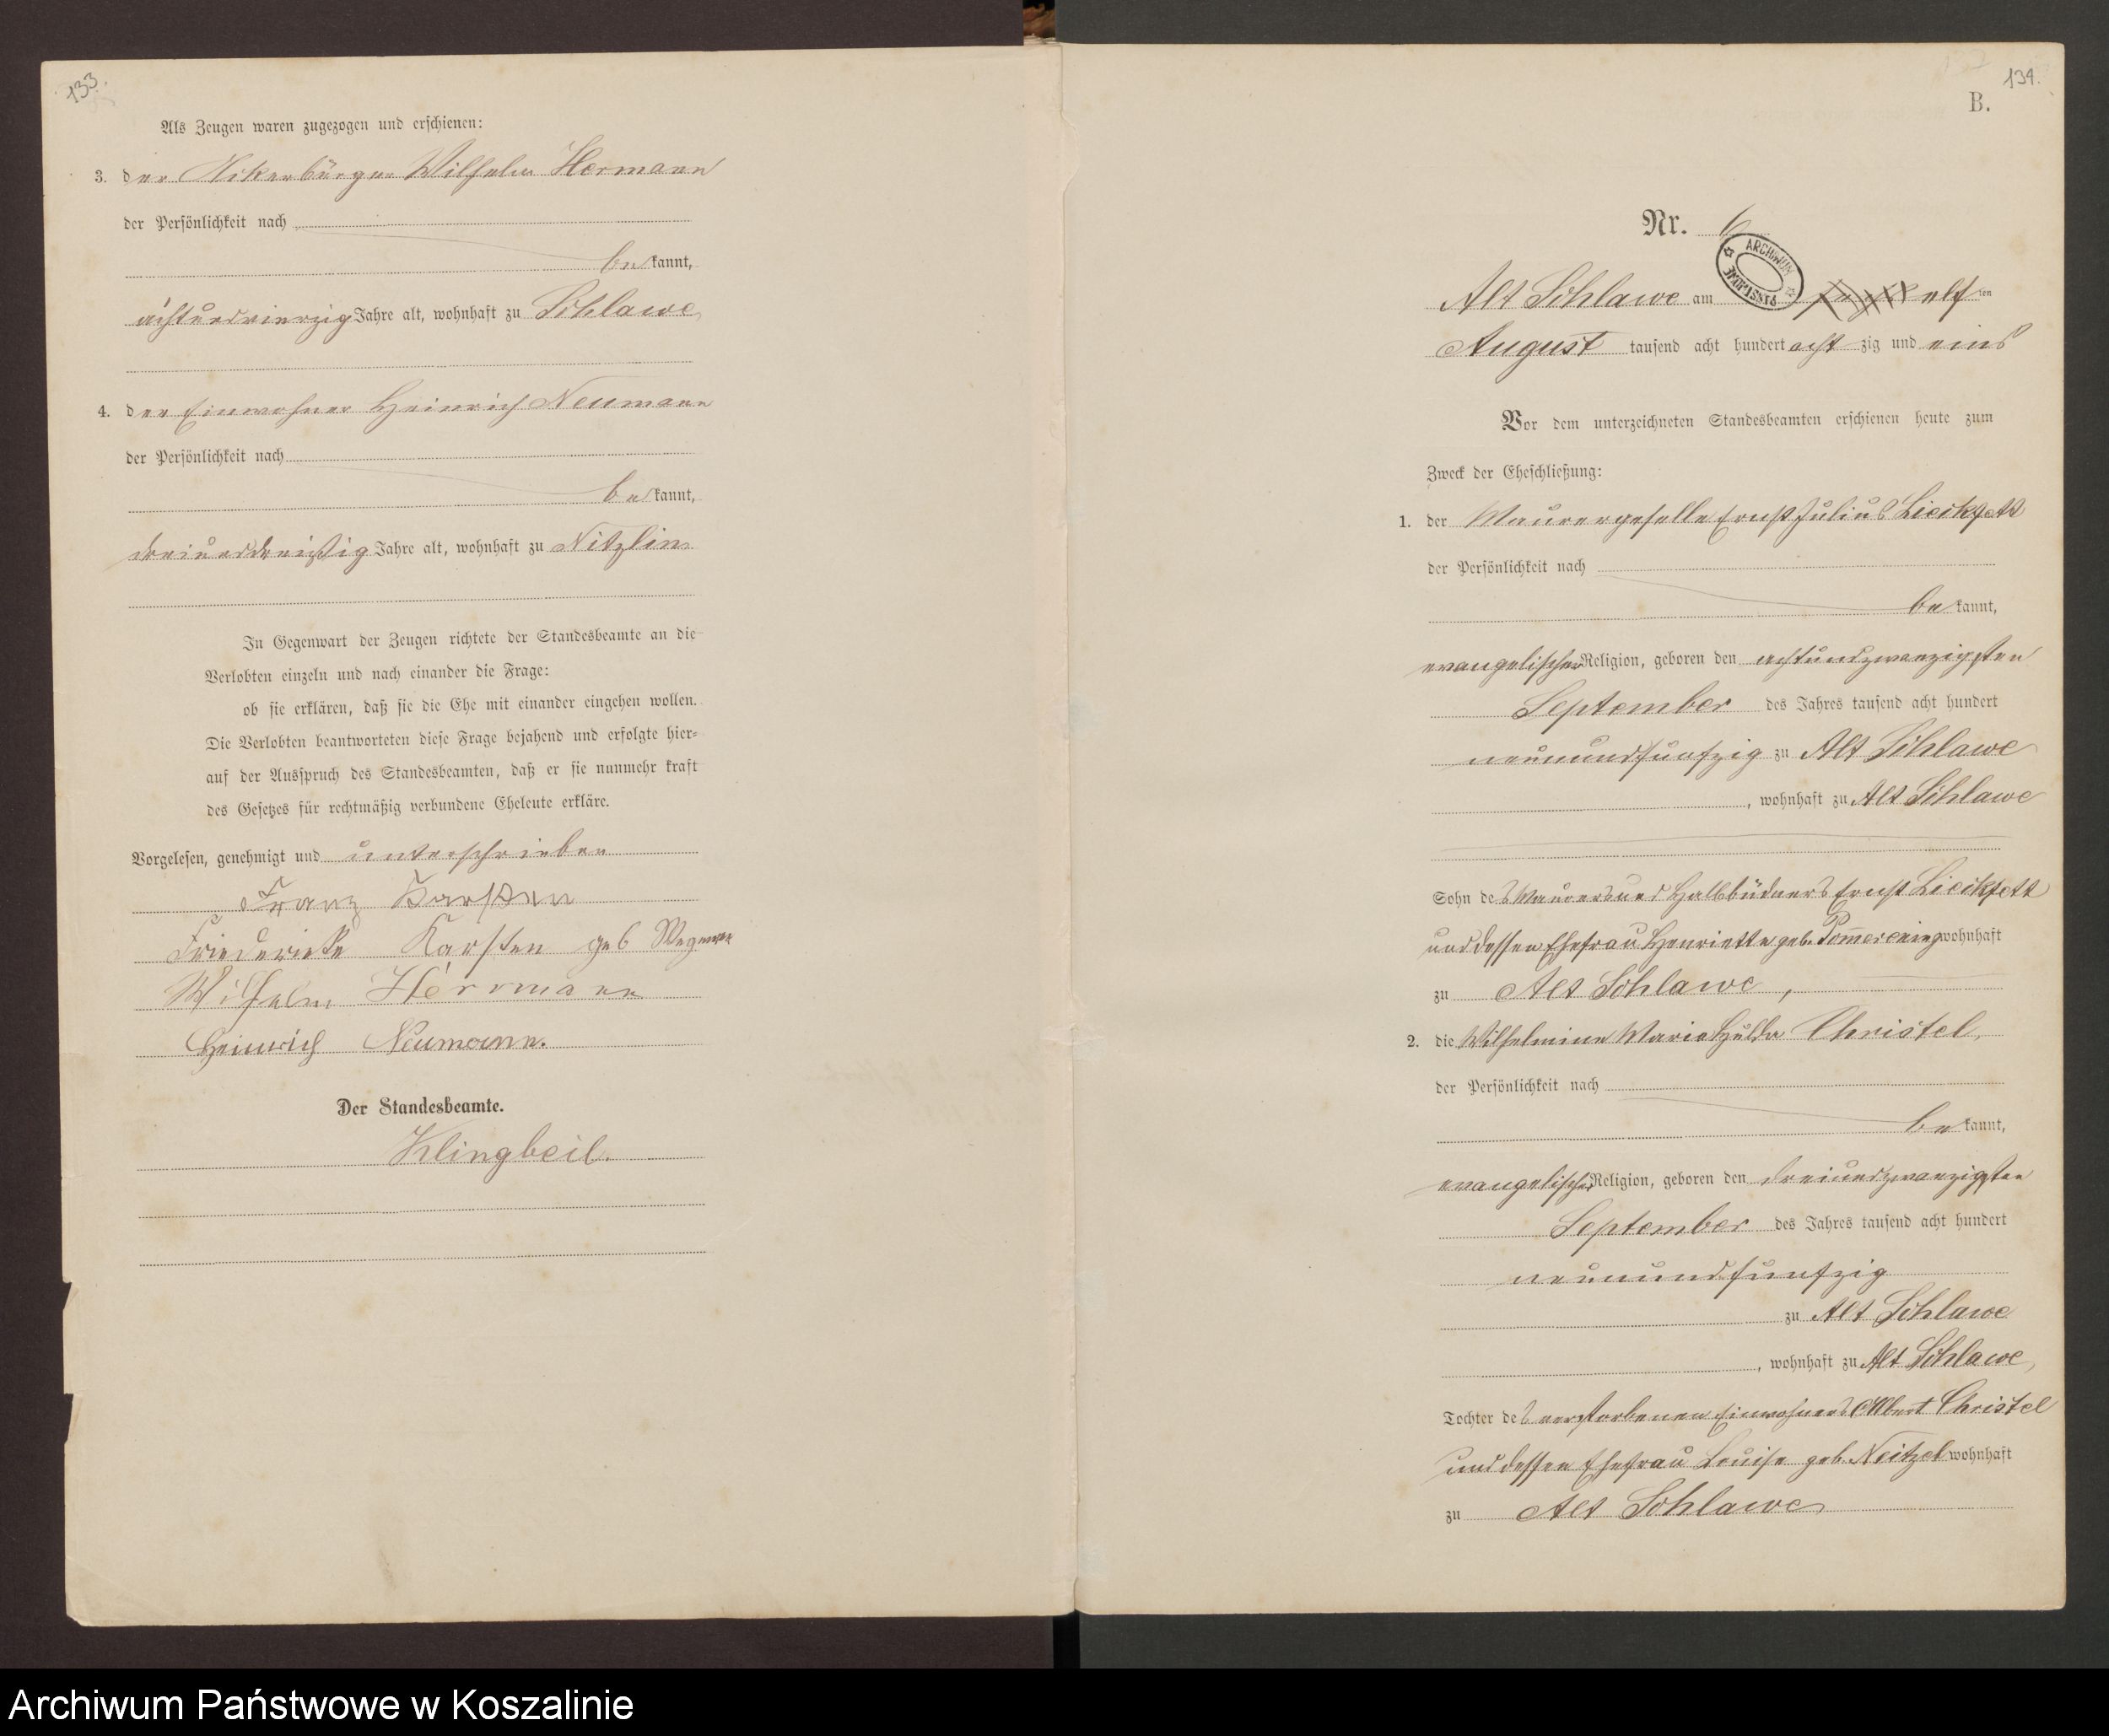 133.
Als Zeugen waren zugezogen und erschienen:
3. der Ackerbürger Wilhelm Hermann
der Persönlichkeit nach
be kannt,
achtundvierzig Jahre alt, wohnhaft zu Schlawe
4. der Einwohner Heinrich Neumann
der Persönlichkeit nach
be kannt,
dreiunddreißig Jahre alt, wohnhaft zu Nitzlin
In Gegenwart der Zeugen richtete der Standesbeamte an die
Verlobten einzeln und nach einander die Frage:
ob sie erklären, daß sie die Ehe mit einander eingehen wollen.
Die Verlobten beantworteten diese Frage bejahend und erfolgte hier=
auf der Ausspruch des Standesbeamten, daß er sie nunmehr kraft
des Gesetzes für rechtmäßig verbundene Eheleute erkläre.
Vorgelesen, genehmigt und unterschrieben
Franz Karsten
Friederieke Karsten geb Wegner
Wilhelm Herrmann
Heinrich Neumann.
Der Standesbeamte.
Klingbeil.
134.
B.
Nr. 6
ARCHIWUM PAŃSTWOWE
Alt Schlawe am elf ten
August tausend acht hundert acht zig und eins
Vor dem unterzeichneten Standesbeamten erschienen heute zum
Zweck der Eheschließung:
1. der Maurergeselle Ernst Julius Lieckfett
der Persönlichkeit nach
be kannt,
evangelischer Religion, geboren den achtundzwanzigsten
September des Jahres tausend acht hundert
neunundfünfzig zu Alt Schlawe
, wohnhaft zu Alt Schlawe
Sohn des Maurers und Halbbüdners Ernst Lieckfett
und dessen Ehefrau Henriette geb. Pommerening wohnhaft
zu Alt Schlawe,
2. die Wilhelmine Marie Hulda Christel,
der Persönlichkeit nach
be kannt,
evangelischer Religion, geboren den dreiundzwanzigsten
September des Jahres tausend acht hundert
neunundfünfzig
zu Alt Schlawe
, wohnhaft zu Alt Schlawe,
Tochter des verstorbenen Einwohners Albert Christel
und dessen Ehefrau Louise geb. Neitzel wohnhaft
zu Alt Schlawe
Archiwum Państwowe w Koszalinie